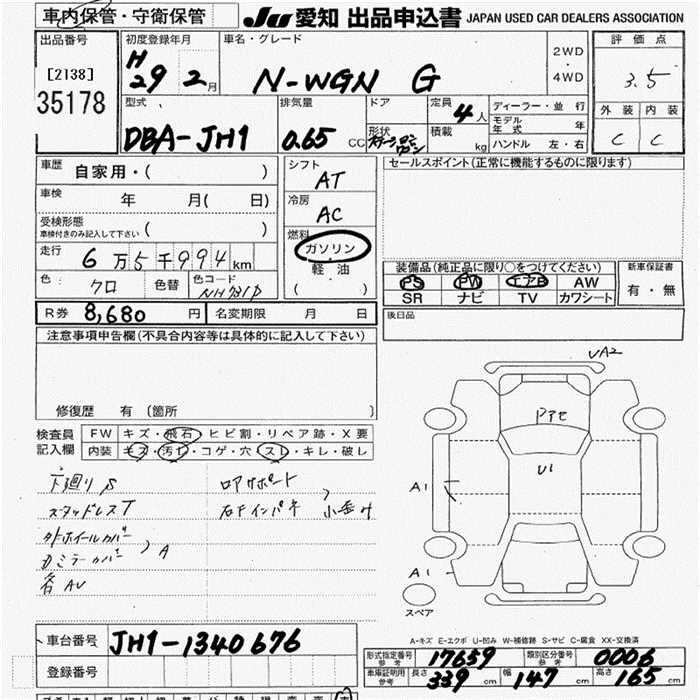 車内保管・守衛保管
JU 愛知 出品申込書 JAPAN USED CAR DEALERS ASSOCIATION
出品番号
[2138]
35178
初度登録年月
H29 2月
車名・グレード
N-WGN G
2WD
・
4WD
評価点
3.5
外装 内装
C C
型式
DBA-JH1
排気量
0.65 CC
ドア
形状
定員
4人
積載
kg
ディーラー・並行
モデル年式 年
ハンドル 左・右
車歴 自家用・( )
車検 年 月( 日)
受検形態
車検付きのみ記入して下さい ( )
走行 6万5千994km
色 クロ 色替 色コード NH731P
シフト
AT
冷房
AC
燃料
ガソリン
軽油
( )
セールスポイント(正常に機能するものに限ります)
装備品(純正品に限り○をつけてください)
PS PW エアB AW
SR ナビ TV カワシート
新車保証書
有・無
R券 8,680円 名変期限 月 日
後日品
注意事項申告欄(不具合内容等は具体的に記入して下さい)
修復歴 有 (箇所 )
検査員
記入欄
FW キズ・飛石・ヒビ割・リペア跡・X要
内装 キズ・汚れ・コゲ・穴・スレ・キレ・破レ
下廻りS
スタッドレスT
外ホイールカバー
ドミラーカバー ) A
各AU
ロアサポート
右Fインパネ
UA2
U1
A1
A1
スペア
A-キズ E-エクボ U-凹み W-補修跡 S-サビ C-腐食 XX-交換済
車台番号 JH1-1340676
登録番号
形式指定番号
参考
17659
類別区分番号
参考
0006
車庫証明用
参考
長さ 339cm 幅 147cm 高さ 165cm